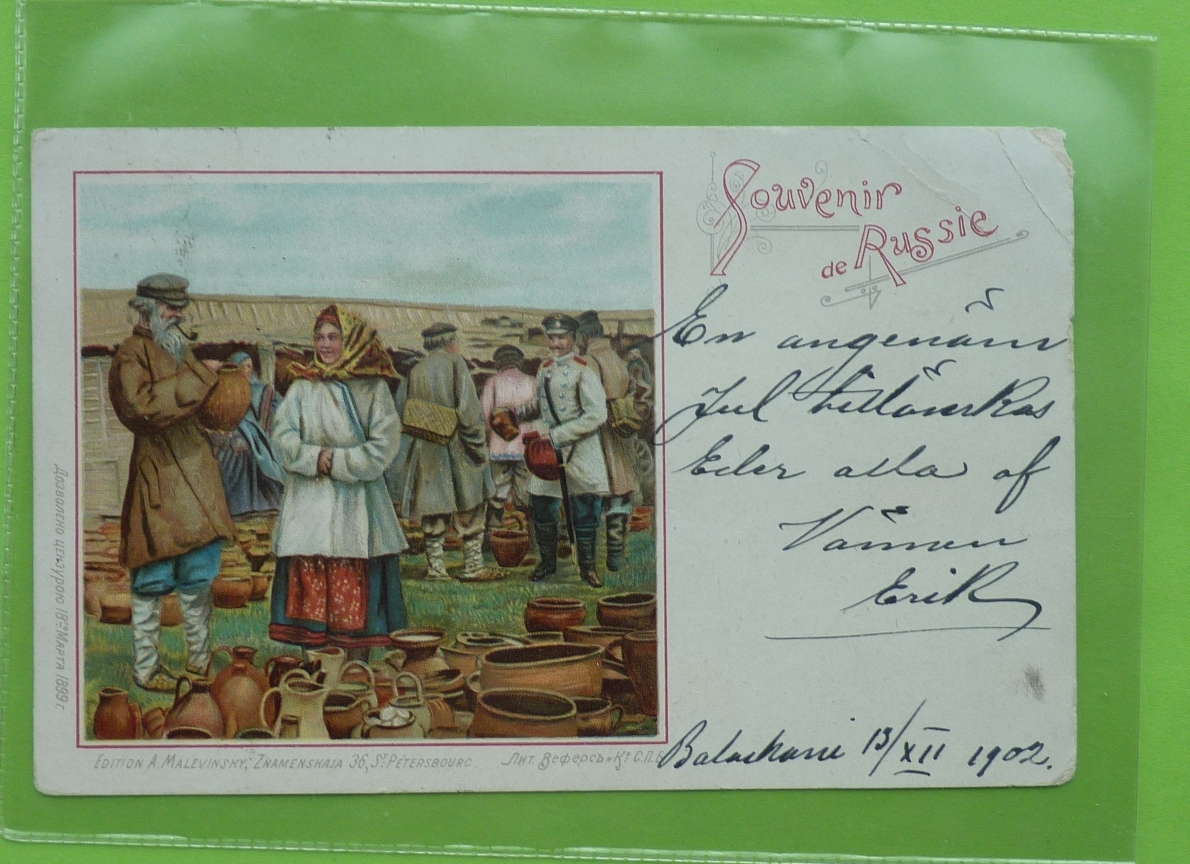 Souvenir
de Russie
En angenäm
Jul tillönskas
Eder alla af
Vännen
Erik
Balachani 13/XII 1902.
Дозволено цензурою 18го Марта 1899 г.
Edition A. Malevinsky, Znamenskaja 36, St Petersbourg
Лит. Веферсъ и Ко С.П.Б